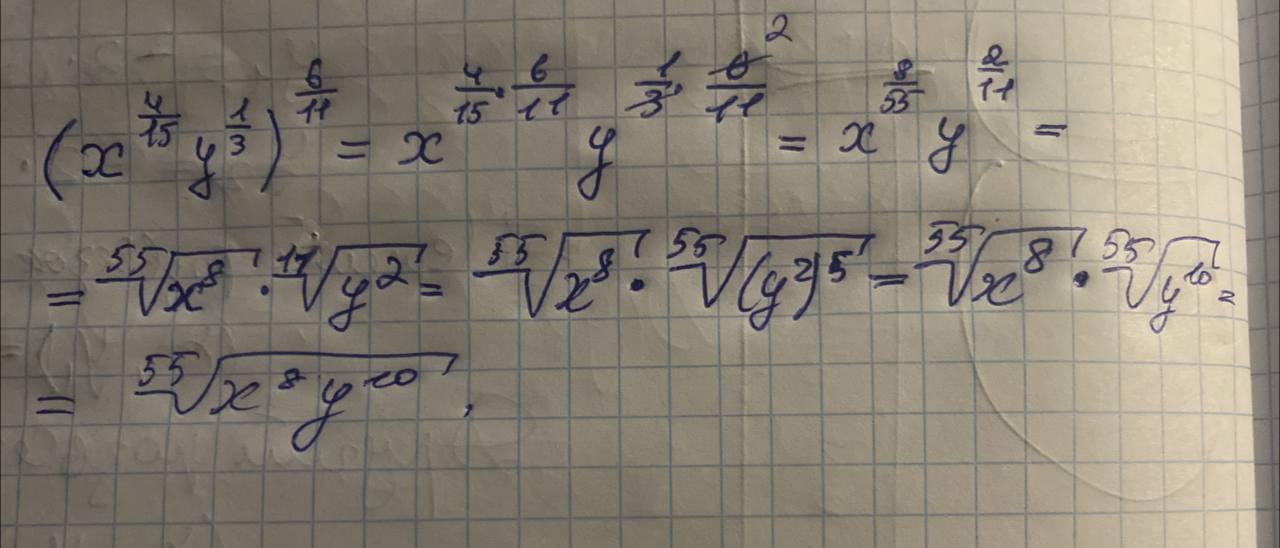 (x^{4/15} y^{1/3})^{6/11} = x^{4/15 · 6/11} y^{1/3 · 6/11 2} = x^{8/55} y^{2/11} =
= ⁵⁵√(x⁸) · ¹¹√(y²) = ⁵⁵√(x⁸) · ⁵⁵√((y²)⁵) = ⁵⁵√(x⁸) · ⁵⁵√(y¹⁰) =
= ⁵⁵√(x⁸y¹⁰).